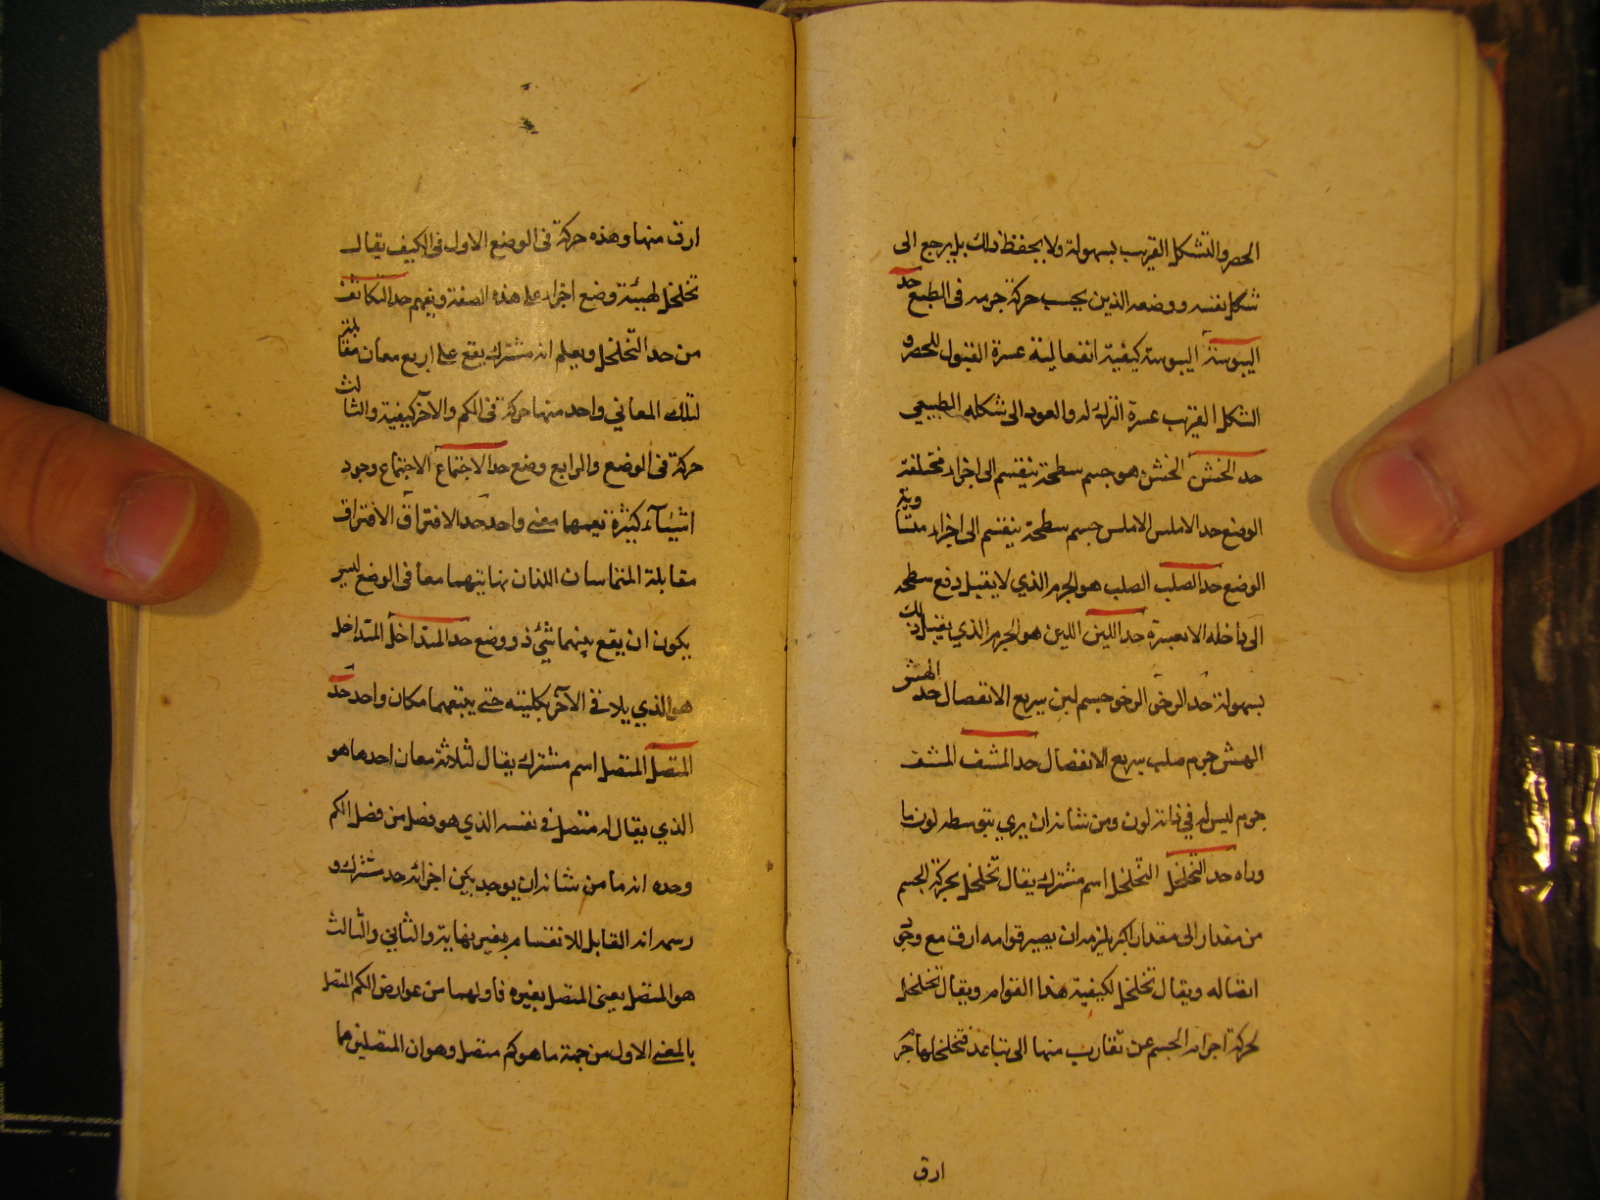 الحصر والتشكل الغريب بسهولة ولا يحفظ ذلك بل يرجع الى
شكل نفسه ووضعه الذين بحسب حركة جرمه فى الطبع حد
اليبوسة اليبوسة كيفية انفعالية عسرة القبول للحصر و
الشكل الغريب عسرة الترك له والعود الى شكله الطبيعي
حد الخشن الخشن هو جسم سطحة ينقسم الى اجزاء مختلفة
الوضع حد الاملس الاملس جسم سطحة ينقسم الى اجزاء متساوية
الوضع حد الصلب الصلب هو الجرم الذي لا يقبل دفع سطحه
الى داخله الا بعسرة حد اللين اللين هو الجرم الذي يقبل ذلك
بسهولة حد الرخو الرخو جسم لين سريع الانفصال حد الهش
الهش جرم صلب سريع الانفصال حد المشف المشف
جرم ليس له في ذاته لون ومن شانه ان يري بتوسطه لون ما
وراه حد التخلخل التخلخل اسم مشترك يقال تخلخل لحركة الجسم
من مقدار الى مقدار اكبر يلزمه ان يصير قوامه ارق مع وجود
اتصاله ويقال تخلخل لكيفية هذا القوام ويقال تخلخل
لحركة اجزاء الجسم عن تقارب منها الى تباعد فتخلخلها جرم
ارق
ارق منها وهذه حركة فى الوضع الاول فى الكيف يقال
تخلخل لهيئة وضع اجزاء على هذه الصفة ويفهم حد التكاثف
من حد التخلخل ويعلم انه مشترك يقع على اربع معان مقابلة
لتلك المعاني واحد منها حركة فى الكم والآخر كيفية والثالث
حركة فى الوضع والرابع وضع حد الاجتماع الاجتماع وجود
اشيآء كثيرة يعمها معنى واحد حد الافتراق الافتراق
مقابلة المتماسان اللذان نهايتهما معا فى الوضع ليس
يكون ان يقع بينهما شئ ذو وضع حد المتداخل المتداخل
هو الذي يلاقى الآخر بكليته حتى يعمهما مكان واحد حد
المتصل المتصل اسم مشترك يقال لثلاثة معان احدها هو
الذي يقال له متصل في نفسه الذي هو فصل من فصل الكم
وحده انه ما من شانه ان يوجد بين اجزائه حد مشترك و
رسمه انه القابل للانقسام بغير نهاية والثاني والثالث
هو المتصل بمعنى المتصل بغيره فاولهما من عوارض الكم المتصل
بالمعنى الاول من جهة ما هو كم متصل وهو ان المتصلين هما